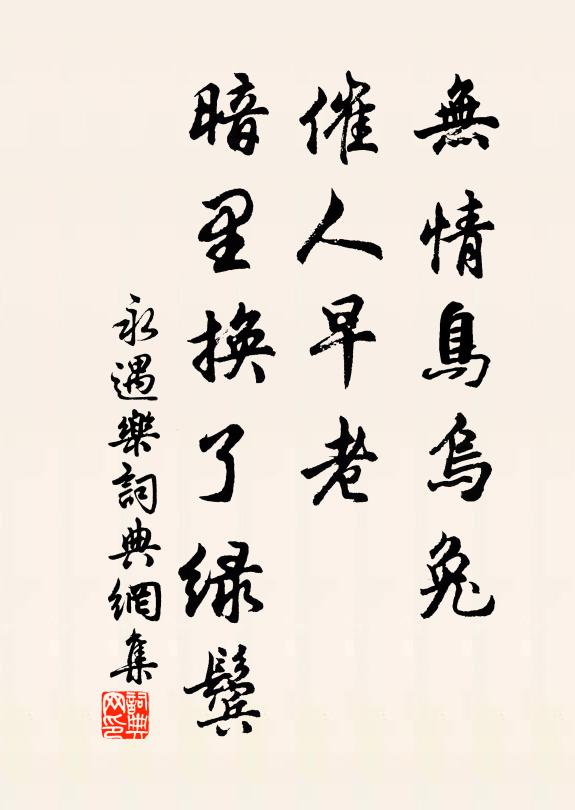 無情烏烏兔
催人早老
暗里換了緑鬢
永遇樂詞典網集
詞典
网印